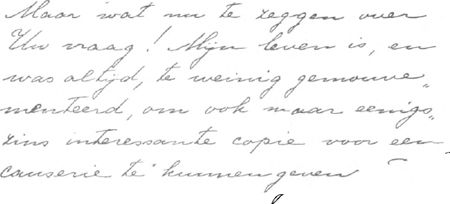 Maar wat nu te zeggen over
Uw vraag! Mijn leven is, en
was altijd, te weinig gemouve„
menteerd, om ook maar eenigs„
zins interessante copie voor een
causerie te kunnen geven